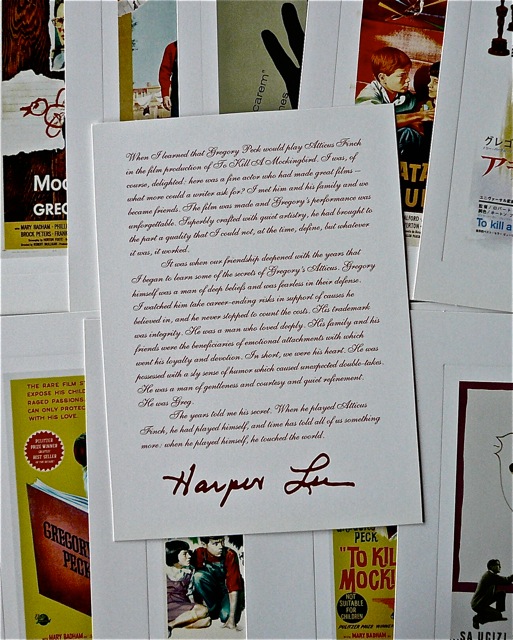 Moc
GREG
MARY BADHAM · PHILLI
BROCK PETERS · FRANK
carem"
ATA
グレゴ
ア
ユニヴァーサル
To kill a
When I learned that Gregory Peck would play Atticus Finch
in the film production of To Kill A Mockingbird, I was, of
course, delighted: here was a fine actor who had made great films —
what more could a writer ask for? I met him and his family and we
became friends. The film was made and Gregory's performance was
unforgettable. Superbly crafted with quiet artistry, he had brought to
the part a quality that I could not, at the time, define, but whatever
it was, it worked.
It was when our friendship deepened with the years that
I began to learn some of the secret of Gregory's Atticus. Gregory
himself was a man of deep beliefs and was fearless in their defense.
I watched him take career-ending risks in support of causes he
believed in, and he never stopped to count the costs. His trademark
was integrity. He was a man who loved deeply. His family and his
friends were the beneficiaries of emotional attachments with which
went his loyalty and devotion. In short, we were his heart. He was
possessed with a sly sense of humor which caused unexpected double-takes.
He was a man of gentleness and courtesy and quiet refinement.
He was Greg.
The years told me his secret. When he played Atticus
Finch, he had played himself, and time has told all of us something
more: when he played himself, he touched the world.
Harper Lee
THE RARE FILM ST
EXPOSE HIS CHILD
RAGED PASSIONS.
CAN ONLY PROTEC
WITH HIS LOVE.
PULITZER
PRIZE WINNER
GREATEST
BEST SELLER
GREGORY
PECK
MARY BADHAM
PECK
"TO KIL
MOCKI
NOT
SUITABLE
FOR
CHILDREN
PULITZER PRIZE WINNER
MARY BADHAM
...SA UGIZI